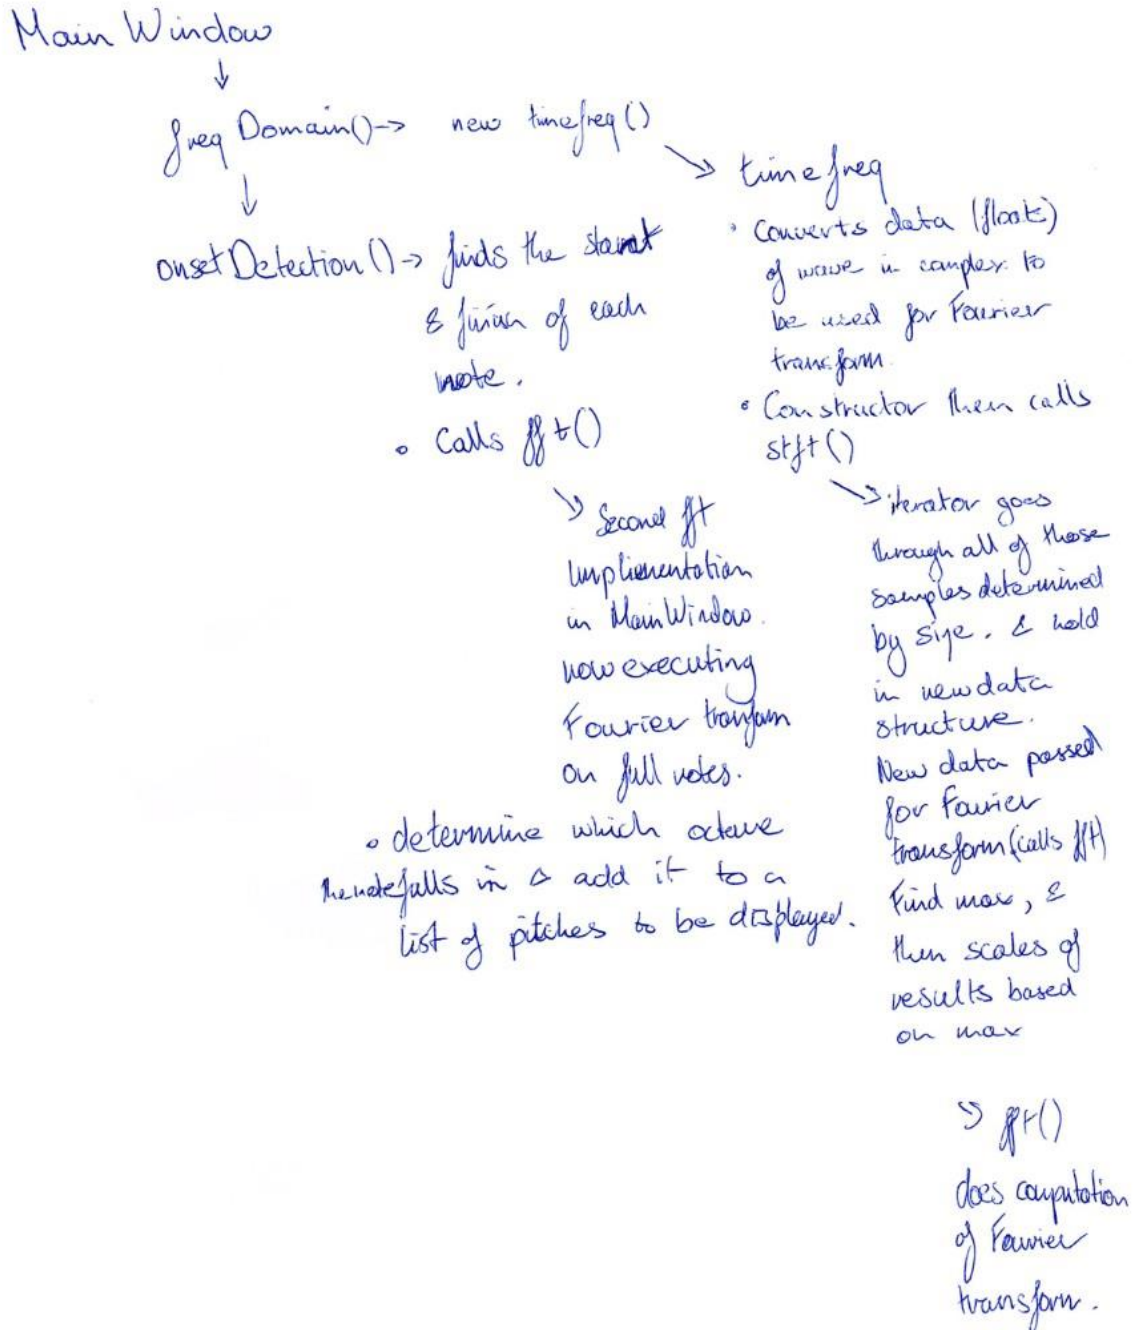 Main Window
freq Domain() -> new timefreq()
onsetDetection() -> finds the start
& finish of each
note.
• Calls fft()
Second fft
Implementation
in MainWindow.
now executing
Fourier transform
on full notes.
• determine which octave
the note falls in & add it to a
list of pitches to be displayed.
timefreq
• Converts data (float)
of wave in complex to
be used for Fourier
transform.
• Constructor then calls
stft()
iterator goes
through all of those
samples determined
by size. & hold
in new data
structure.
New data passed
for Fourier
transform (calls fft)
Find max, &
then scales of
results based
on max
fft()
does computation
of Fourier
transform.